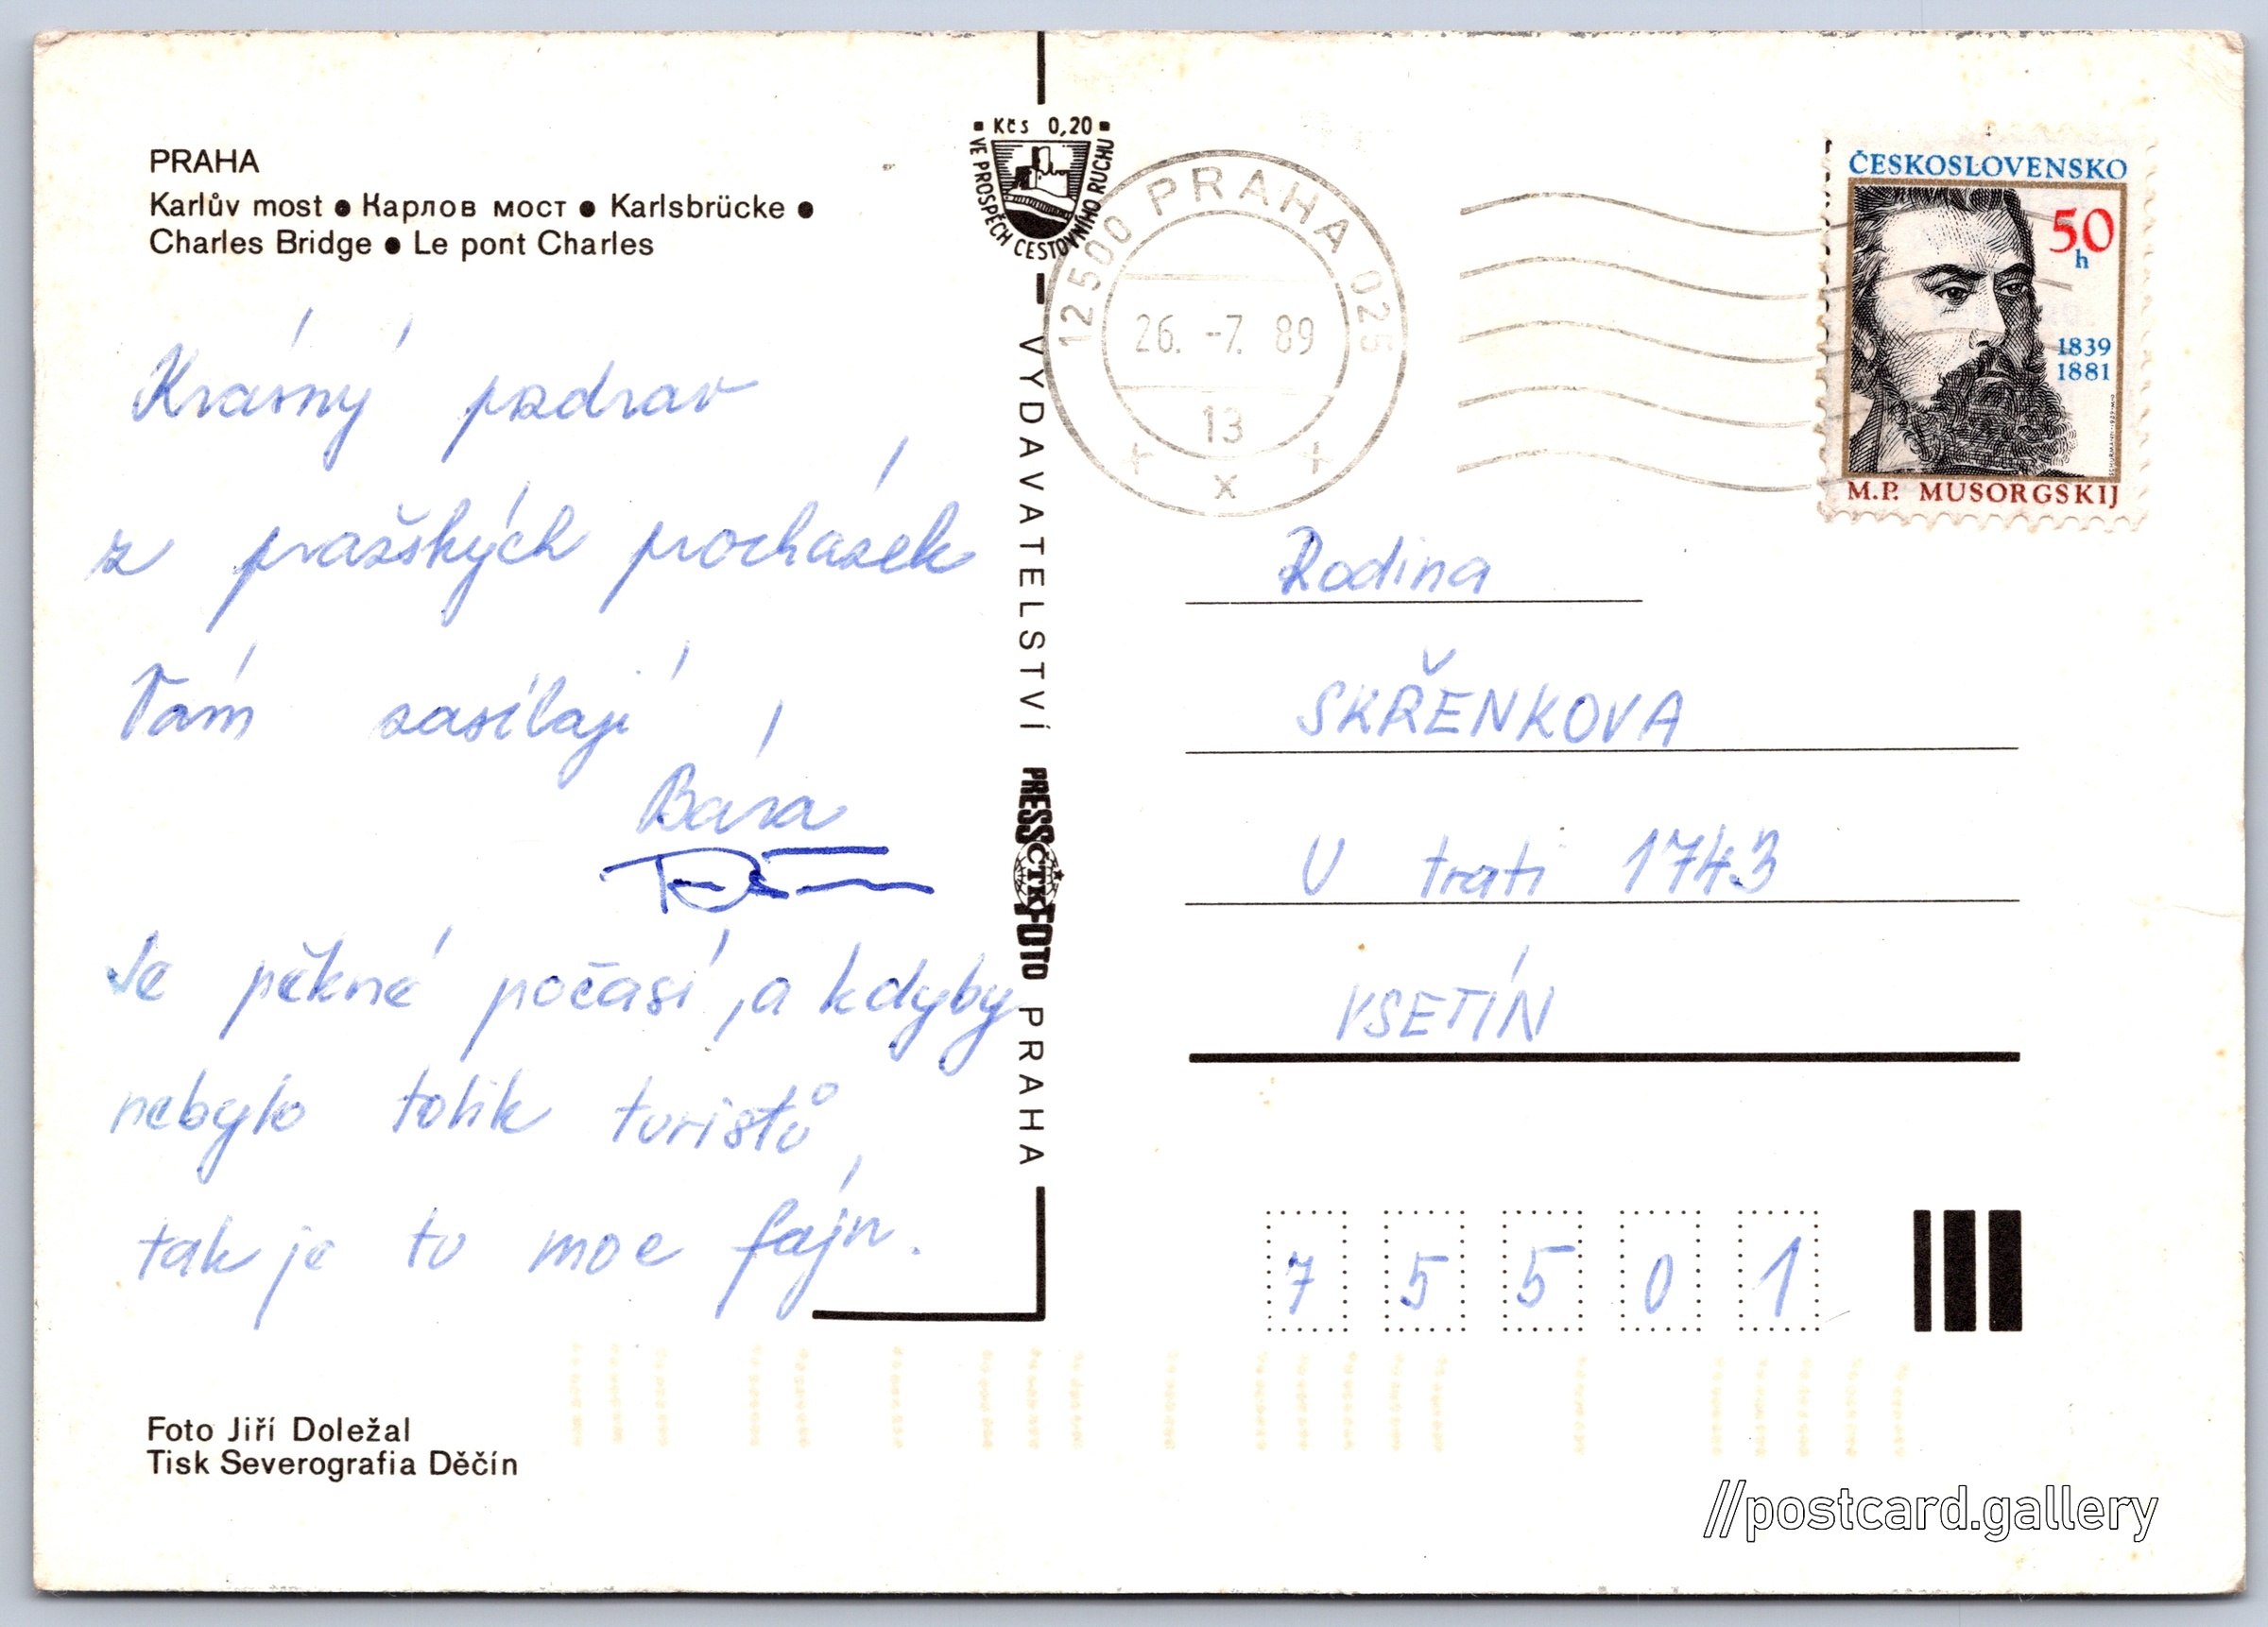 PRAHA
Karlův most ● Карлов мост ● Karlsbrücke ●
Charles Bridge ● Le pont Charles
Krásný pozdrav
z pražských procházek
Vám zasílají
Bára
Je pěkné počasí, a kdyby
nebylo tolik turistů,
tak je tu moc fajn.
Foto Jiří Doležal
Tisk Severografia Děčín
Kčs 0,20
VE PROSPĚCH CESTOVNÍHO RUCHU
VYDAVATELSTVÍ PRESSFOTO PRAHA
ČTK
12500 PRAHA 025
26. -7. 89
13
x
ČESKOSLOVENSKO
50
h
1839
1881
M.P. MUSORGSKIJ
Rodina
SKŘENKOVA
U trati 1743
VSETÍN
7 5 5 0 1
//postcard.gallery